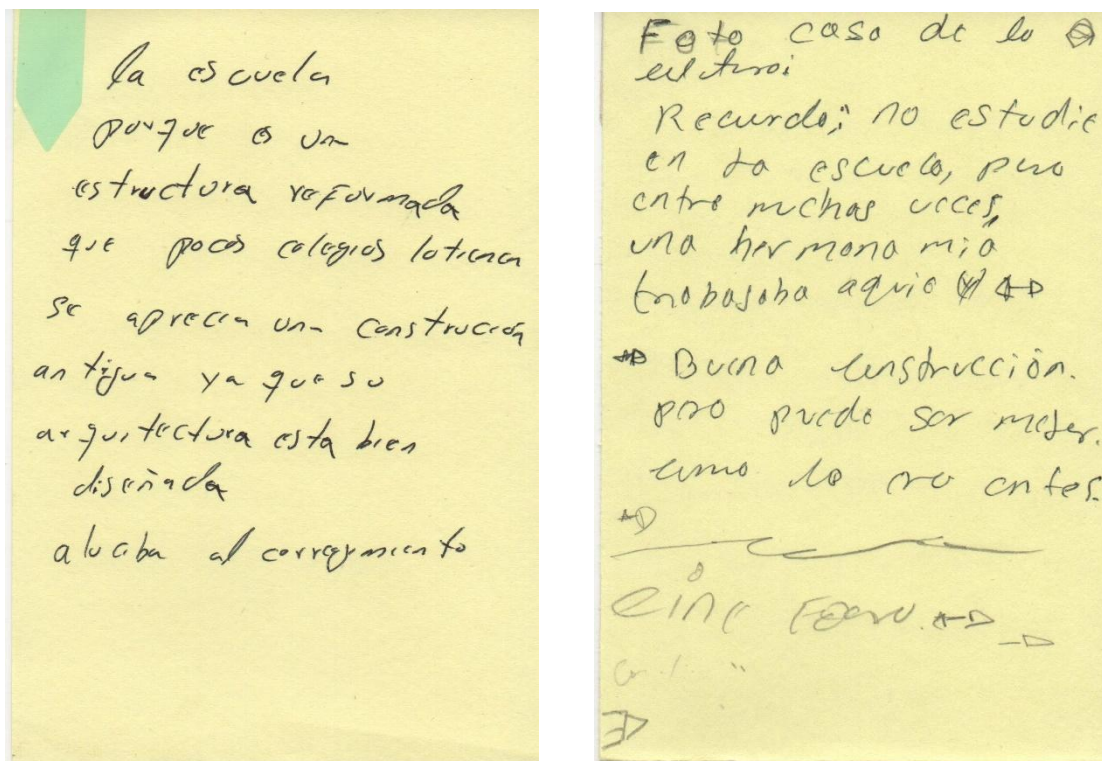 la escuela
porque es una
estructura reformada
que pocos colegios lo tienen
se aprecia una construcción
antigua ya que su
arquitectura esta bien
diseñada
al corregimiento
Foto casa de la
cultura:
Recuerdo; no estudie
en la escuela, pero
entre muchas veces,
una hermana mia
trabajaba aqui
Buena construcción.
pero puede ser mejor.
como lo era antes.
cine